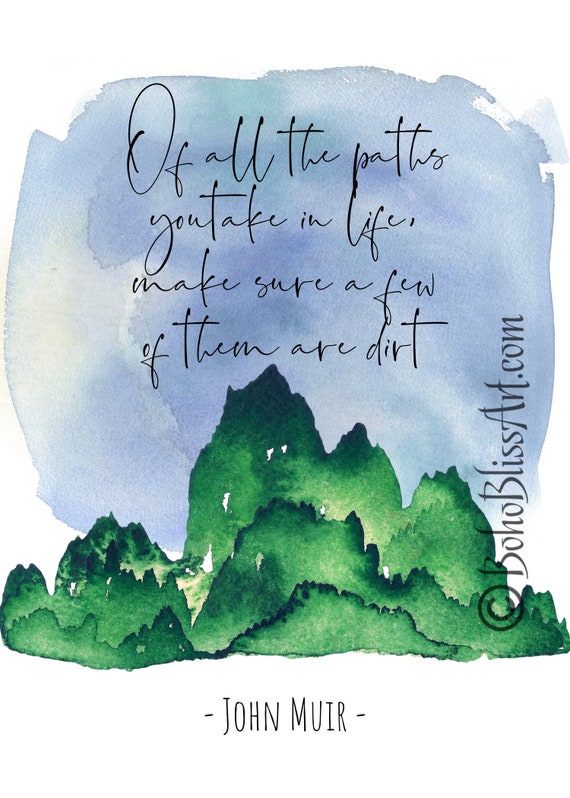 Of all the paths
you take in life,
make sure a few
of them are dirt
©BohoBlissArt.com
- John Muir -